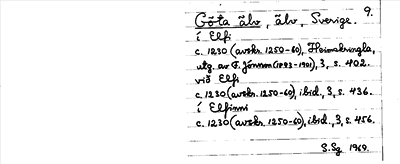 9.
Göta älv, älv, Sverige.
í Elfi
c. 1230 (avskr. 1250-60), Heimskringla,
utg. av F. Jónsson (1893-1901), 3, s. 402.
við Elfi
c. 1230 (avskr. 1250-60), ibid., 3, s. 436.
í Elfinni
c. 1230 (avskr. 1250-60), ibid., 3, s. 456.
S.Sg 1960.